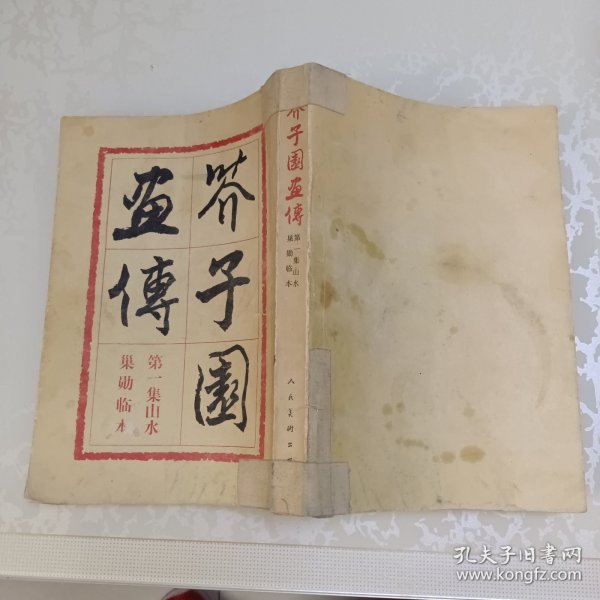 芥子園
畫傳
第一集山水
巢勋临本
芥子園畫傳
第一集山水
巢勋临本
人民美術出
孔夫子旧书网
www.kongfz.com